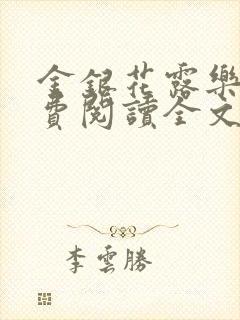 金銀花露樂
費閱讀全文
李雲勝